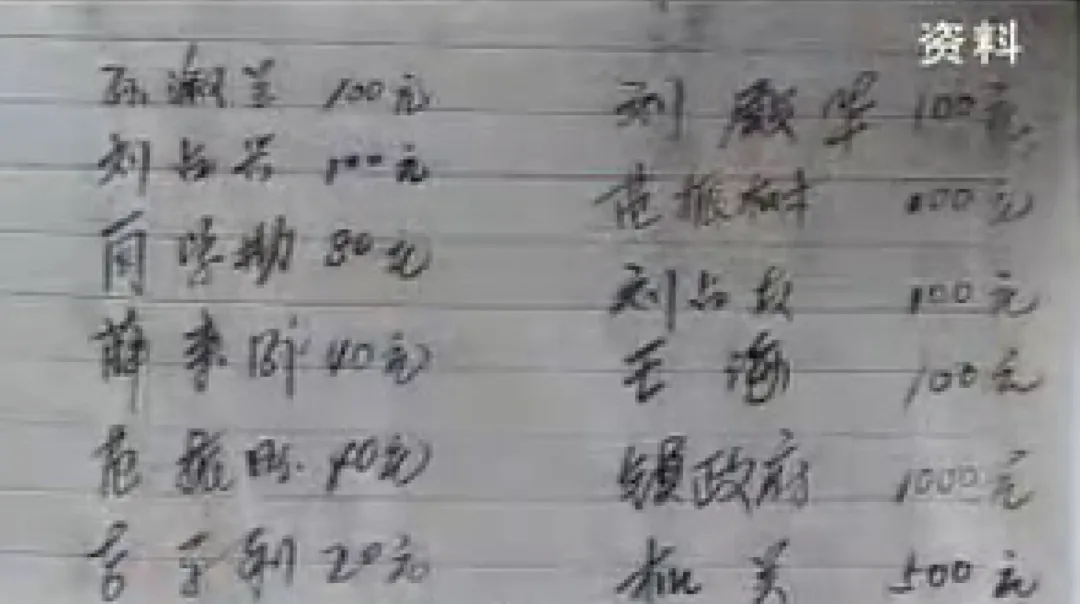 资料
孙淑兰 100元
刘占兴 100元
闫学勤 80元
薛来 40元
范振 40元
20元
刘殿华 100元
范振树 100元
刘占友 100元
王海 100元
镇政府 1000元
机关 500元